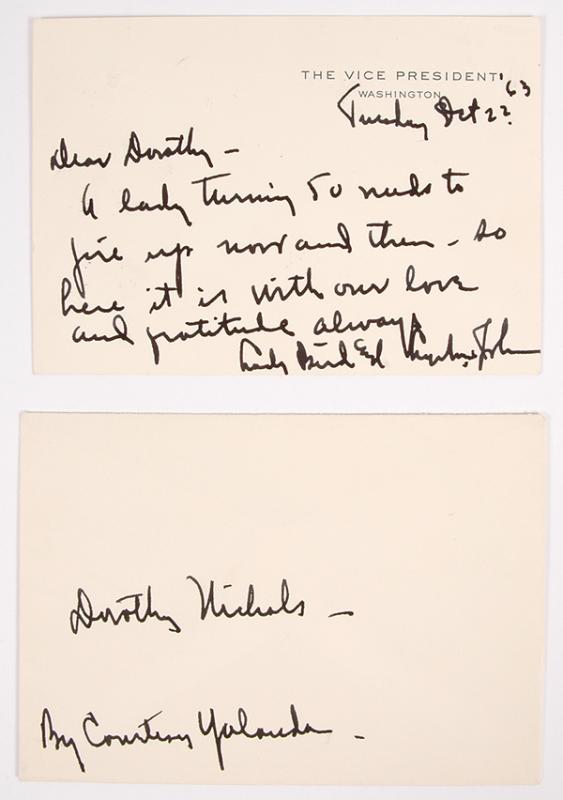 THE VICE PRESIDENT
WASHINGTON
Tuesday Oct 22 '63
Dear Dorothy -
A lady turning 50 needs to
fire up now and then - so
here it is with our love
and gratitude always
Lady Bird & Lyndon Johnson
Dorothy Nichols -
By Courtesy Yolanda -